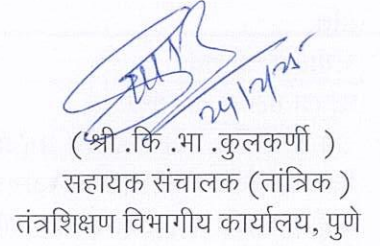 ( श्री .कि .भा .कुलकर्णी )
सहायक संचालक (तांत्रिक )
तंत्रशिक्षण विभागीय कार्यालय, पुणे